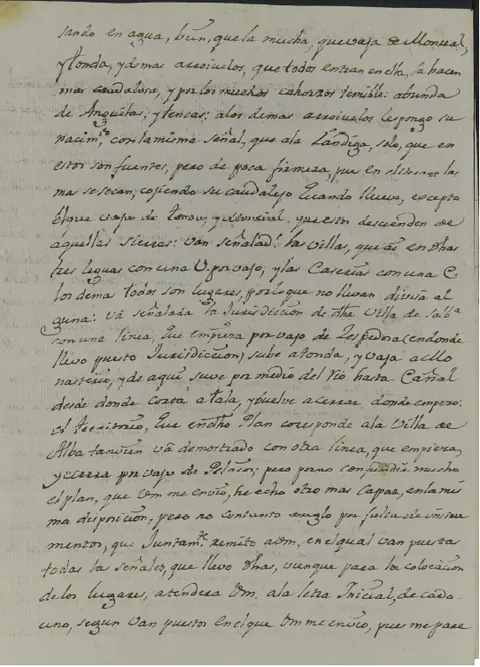 sando en agua, bien, que la mucha, que vaja de Monreal,
y tonda, y demas arroiuelos, que todos entran en ella, la hacen
mas caudalosa, y por los muchos cahozos temible: abunda
de Anguilas, y tencas: a los demas arroiuelos les pongo su
nacim.to con la misma señal, que a la Landiga, solo, que en
estos son fuentes, pero de poca firmeza, pues en el las
mas se secan, cojiendo su caudalejo quando llueve, excepto
el que vaja de que estos descienden de
aquellas sierras: van señalad.s las villas, que ai en dhas
tres leguas con una V. por vajo, y las Caserias con una C.
los demas todos son lugares, por lo que no llevan divisa al
guna: va señalada la Jurisdiccion de dha villa de Salv.a
con una linea, que empieza por vajo de Zespedosa (en donde
llevo puesto Jurisdiccion) sube a tonda, y vaja a el Mo
nasterio, y de aqui suve por medio del rio hasta Cañal
desde donde corta a tala, y vuelve a cerrar donde empezo:
el territorio, que en dho Plan corresponde a la Villa de
Alba tanvien va demostrado con otra linea, que empieza,
y cierra por vajo de pero por no confundir mucho
el plan, que Vm me envio, he echo otro mas capaz, en la mis
ma disposicion, pero no con tanto arreglo por falta de instru
mentos, que Juntam.te remito a Vm, en el qual van puestas
todas las señales, que llevo dhas, y aunque para la colocacion
de los lugares, atendera Vm. a la letra Inicial, de cada
uno, segun van puestos en el que Vm me envio, pues me pare